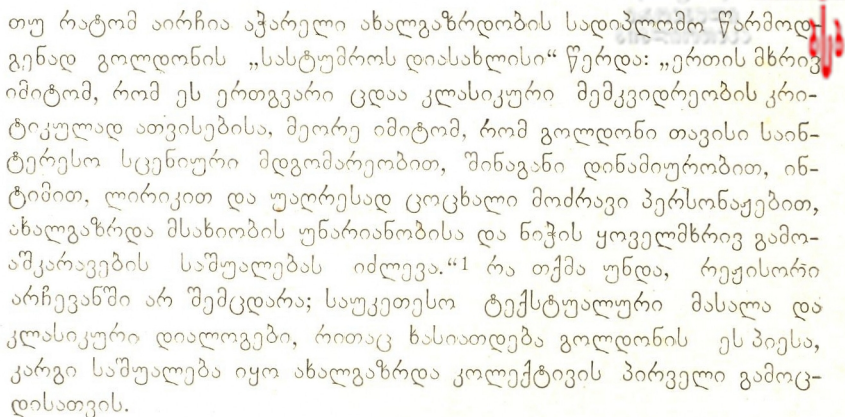 თუ რატომ აირჩია აჭარელი ახალგაზრდობის სადიპლომო წარმოდ-
გენად გოლდონის „სასტუმროს დიასახლისი“ წერდა: „ერთის მხრივ
იმიტომ, რომ ეს ერთგვარი ცდაა კლასიკური მემკვიდრეობის კრი-
ტიკულად ათვისებისა, მეორე იმიტომ, რომ გოლდონი თავისი საინ-
ტერესო სცენიური მდგომარეობით, შინაგანი დინამიურობით, ინ-
ტიმით, ლირიკით და უაღრესად ცოცხალი მოძრავი პერსონაჟებით,
ახალგაზრდა მსახიობის უნარიანობისა და ნიჭის ყოველმხრივ გამო-
აშკარავების საშუალებას იძლევა.“¹ რა თქმა უნდა, რეჟისორი
არჩევანში არ შემცდარა; საუკეთესო ტექსტუალური მასალა და
კლასიკური დიალოგები, რითაც ხასიათდება გოლდონის ეს პიესა,
კარგი საშუალება იყო ახალგაზრდა კოლექტივის პირველი გამოც-
დისათვის.